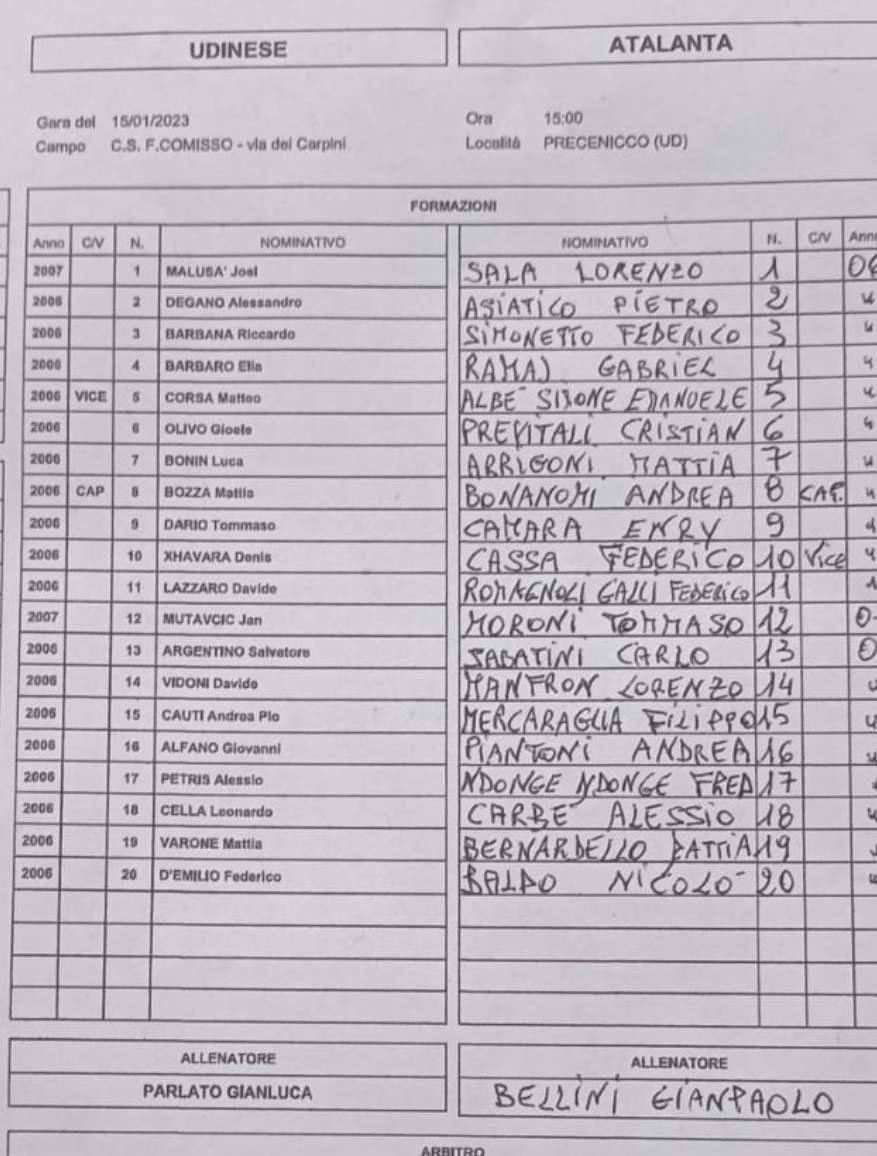 UDINESE ATALANTA
Gara del 15/01/2023 Ora 15:00
Campo C.S. F.COMISSO - via dei Carpini Località PRECENICCO (UD)
FORMAZIONI
Anno C/V N. NOMINATIVO NOMINATIVO N. C/V Anno
2007 1 MALUSA' Joel SALA LORENZO 1 06
2006 2 DEGANO Alessandro ASIATICO PIETRO 2 "
2006 3 BARBANA Riccardo SIMONETTO FEDERICO 3 "
2006 4 BARBARO Elia RAMAJ GABRIEL 4 "
2006 VICE 5 CORSA Matteo ALBE' SIMONE EMANUELE 5 "
2006 6 OLIVO Gioele PREVITALI CRISTIAN 6 "
2006 7 BONIN Luca ARRIGONI MATTIA 7 "
2006 CAP 8 BOZZA Mattia BONANOMI ANDREA 8 CAP. "
2006 9 DARIO Tommaso CAMARA ENRY 9 "
2006 10 XHAVARA Denis CASSA FEDERICO 10 Vice "
2006 11 LAZZARO Davide ROMAGNOLI GALLI FEDERICO 11 "
2007 12 MUTAVCIC Jan MORONI TOMMASO 12
2006 13 ARGENTINO Salvatore SABATINI CARLO 13
2006 14 VIDONI Davide MANFRON LORENZO 14 "
2006 15 CAUTI Andrea Pio MERCARAGLIA FILIPPO 15 "
2006 16 ALFANO Giovanni PIANTONI ANDREA 16 "
2006 17 PETRIS Alessio NDONGE NDONGE FRED 17 "
2006 18 CELLA Leonardo CARBE' ALESSIO 18 "
2006 19 VARONE Mattia BERNARDELLO MATTIA 19 "
2006 20 D'EMILIO Federico BALDO NICOLO' 20 "
ALLENATORE ALLENATORE
PARLATO GIANLUCA BELLINI GIANPAOLO
ARBITRO